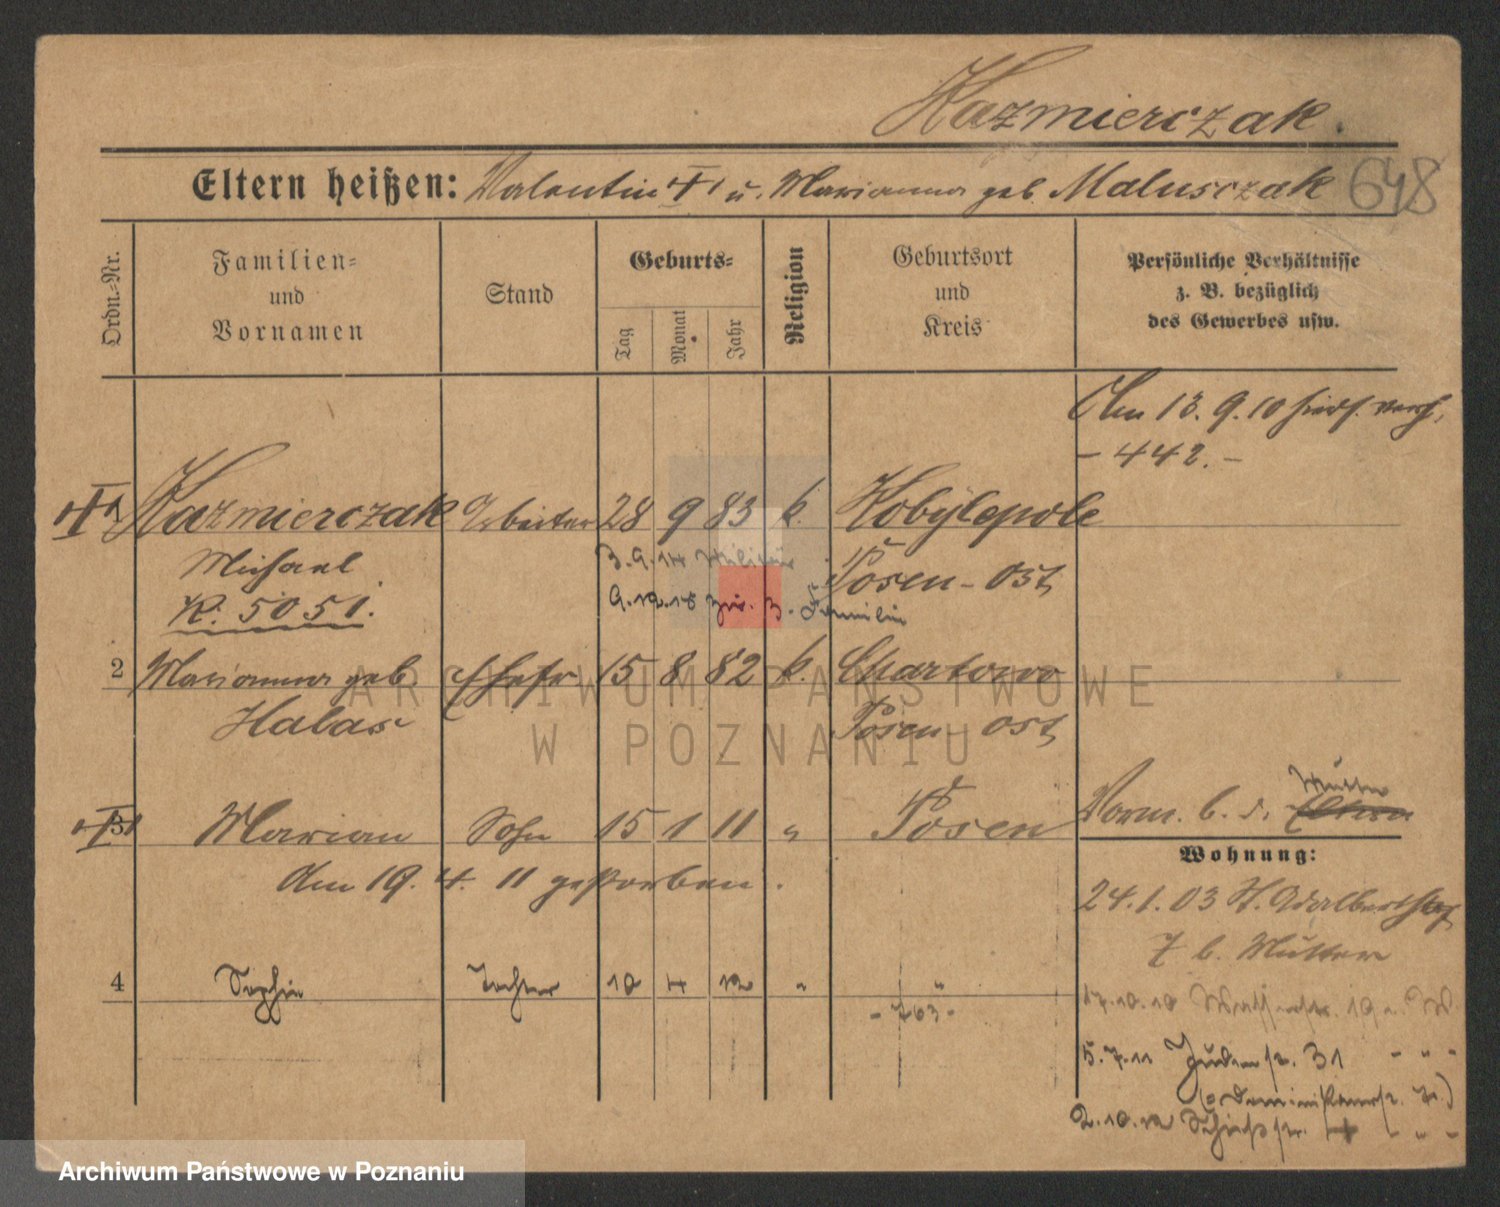 Kazmierczak.
Eltern heißen: Valentin u. Marianna geb. Maluszczak 648
Ordn.=Nr.
Familien=
und
Vornamen
Stand
Geburts=
Tag
Monat
Jahr
Religion
Geburtsort
und
Kreis
Persönliche Verhältnisse
z. B. bezüglich
des Gewerbes usw.
Am 13.9.10 verh.
- 442. -
1 Kazmierczak Arbeiter 28 9 83 k. Kobylepole
Michael
3.9.14 Militär
Posen-Ost
K. 5051.
9.12.18 z. Familie
2 Marianna geb. Ehefr 15 8 82 k. Chartowo
Halas
Posen-Ost
3 Marian Sohn 15 1 11 " Posen
Am 19.4.11 gestorben.
Vorm. b. d. Mutter
Eltern
Wohnung:
24.1.03 St. Adalbertstr
7 b. Mutter
4 Sophie Tochter 10 4 12 " "
- 763 -
17.10.10 19
5.7.11 Judenstr. 31 - " -
(= Dominikanerstr. )
2.10.12 Schießstr. 4 - " -
ARCHIWUM PAŃSTWOWE
W POZNANIU
Archiwum Państwowe w Poznaniu